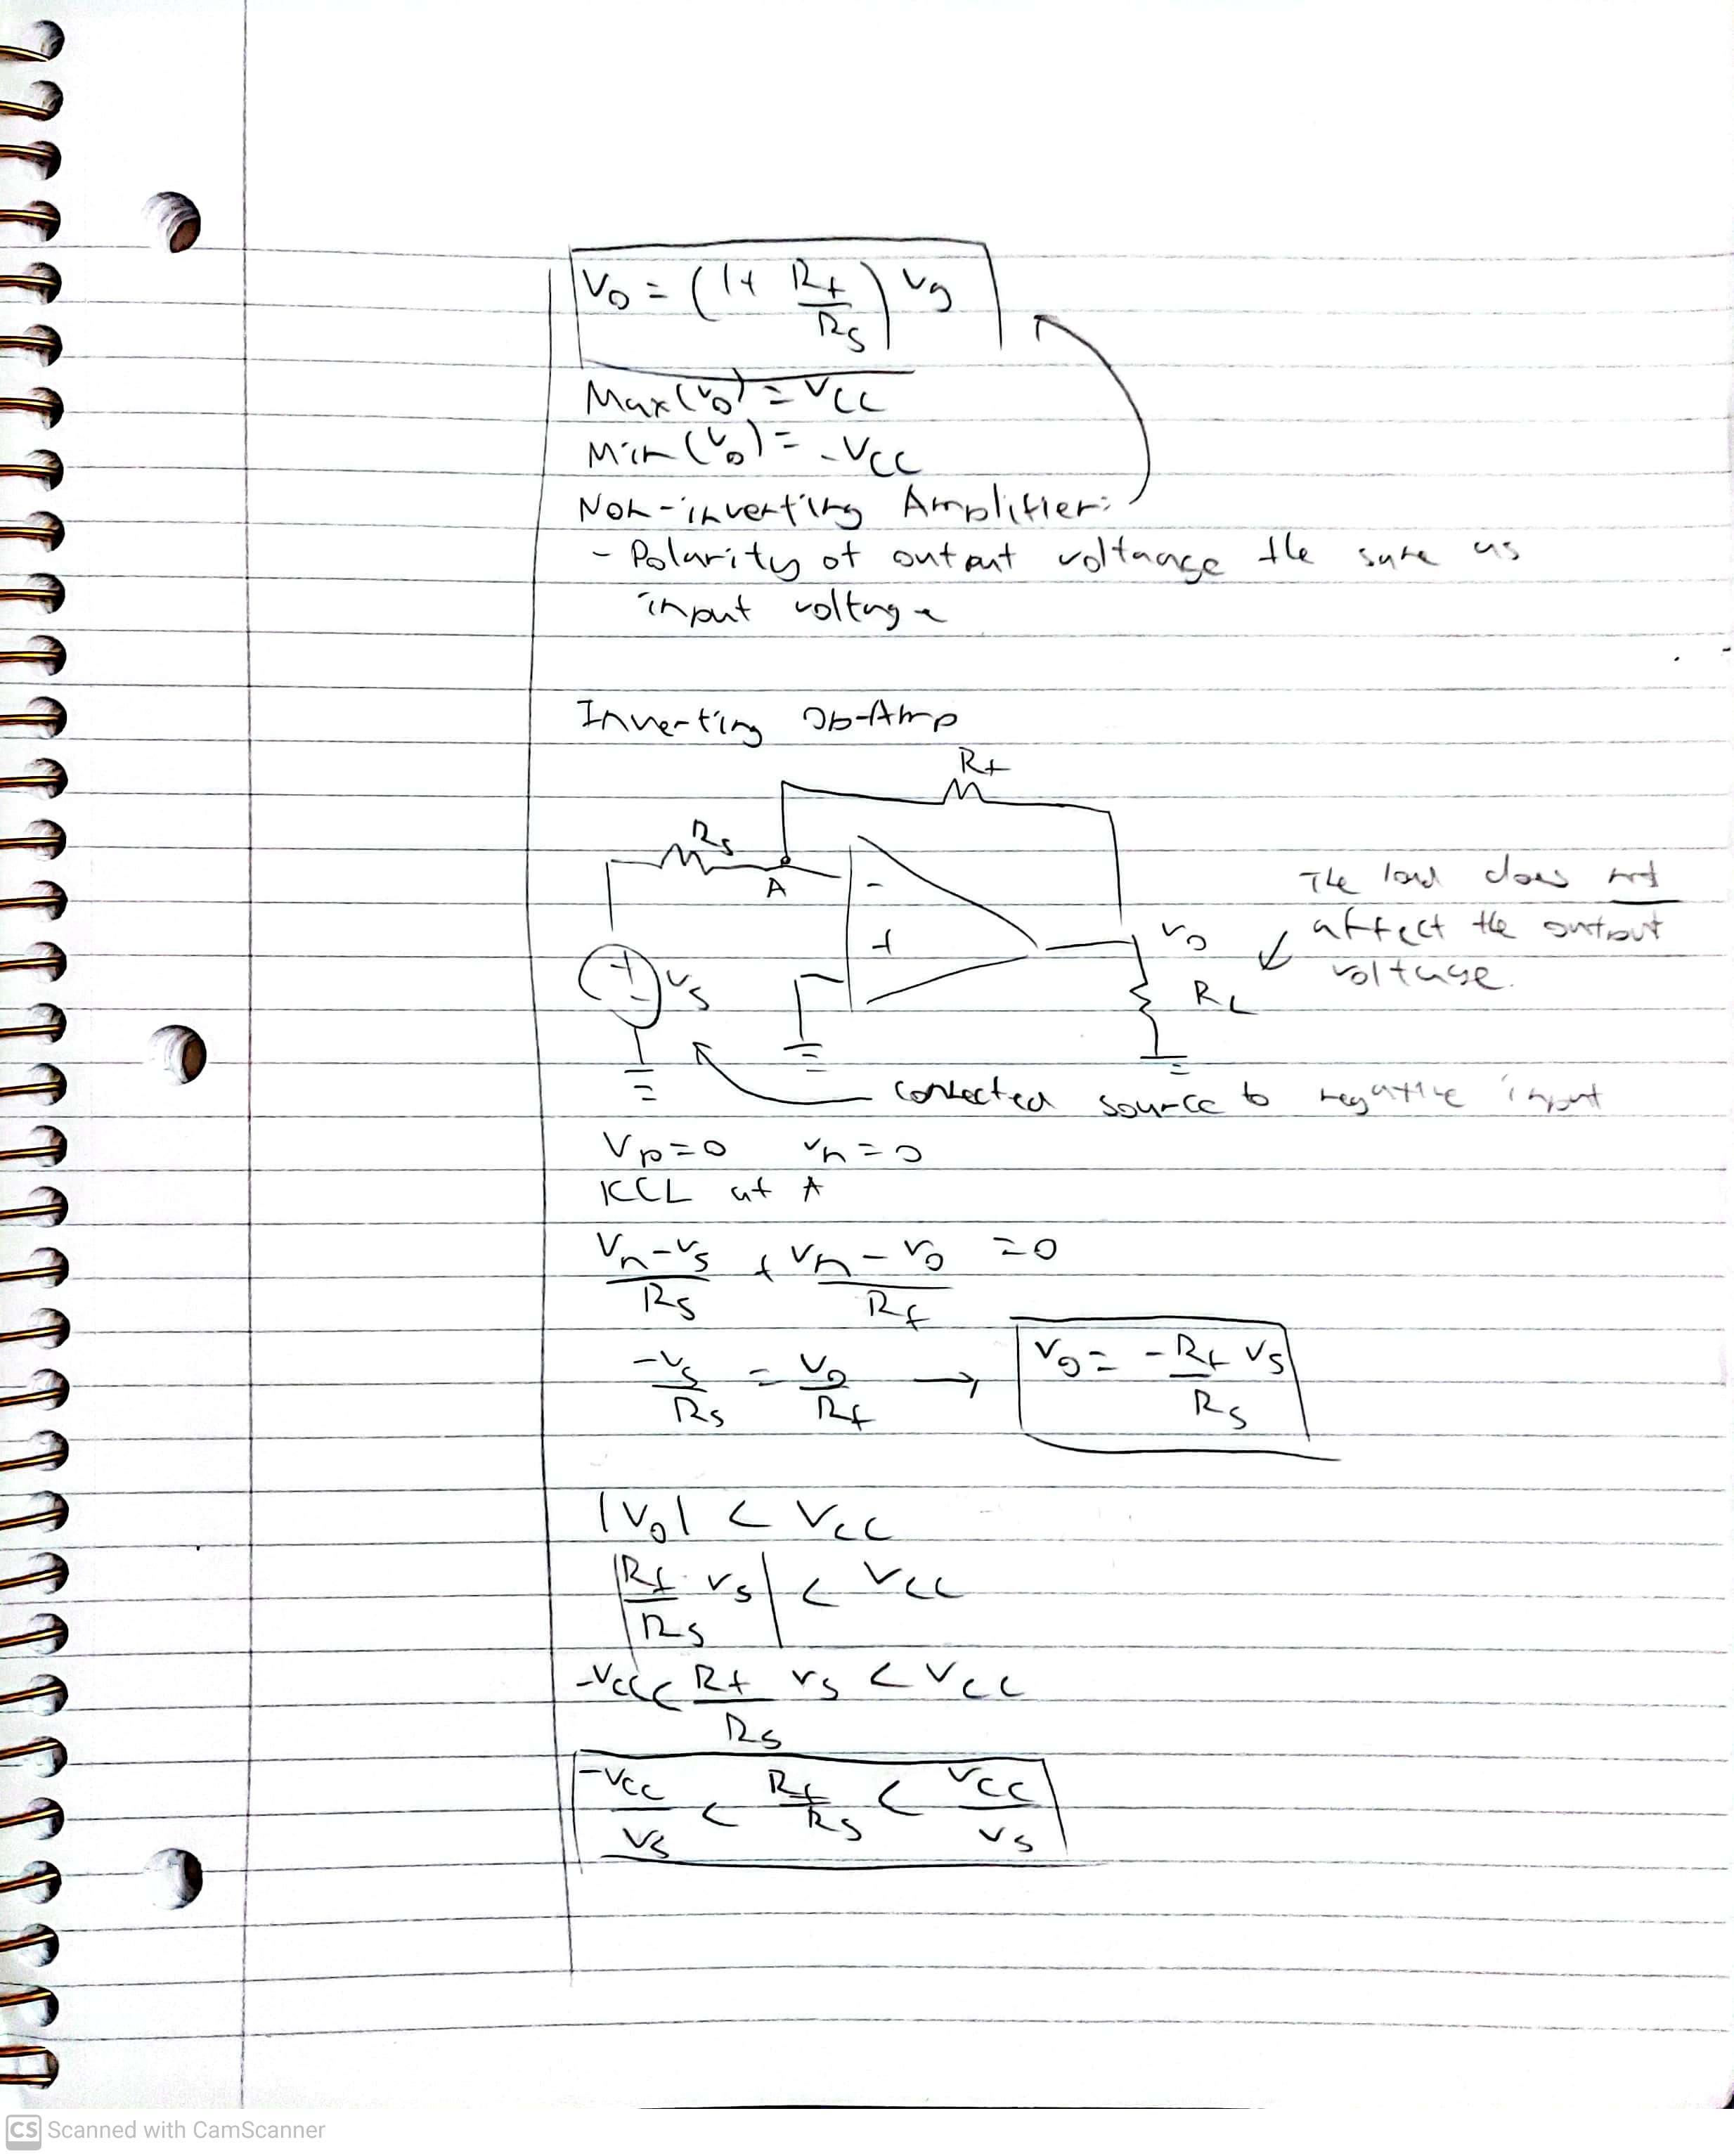 Vo = (1+ Rf/Rs) vg
Max(vo) = Vcc
Min(vo) = -Vcc
Non-inverting Amplifier:
- Polarity of output voltaage the same as
input voltage
Inverting Op-Amp
Rf
Rs
A
-
The load does not
+
vo
affect the output
+
-
vs
voltage.
RL
connected source to negative input
Vp=0 vn=0
KCL at A
Vn-vs/Rs + Vn-vo/Rf =0
-vs/Rs = vo/Rf → vo = -Rf/Rs vs
|Vo| < Vcc
|Rf/Rs vs| < Vcc
-Vcc < Rf/Rs vs < Vcc
-Vcc/vs < Rf/Rs < Vcc/vs
CS Scanned with CamScanner